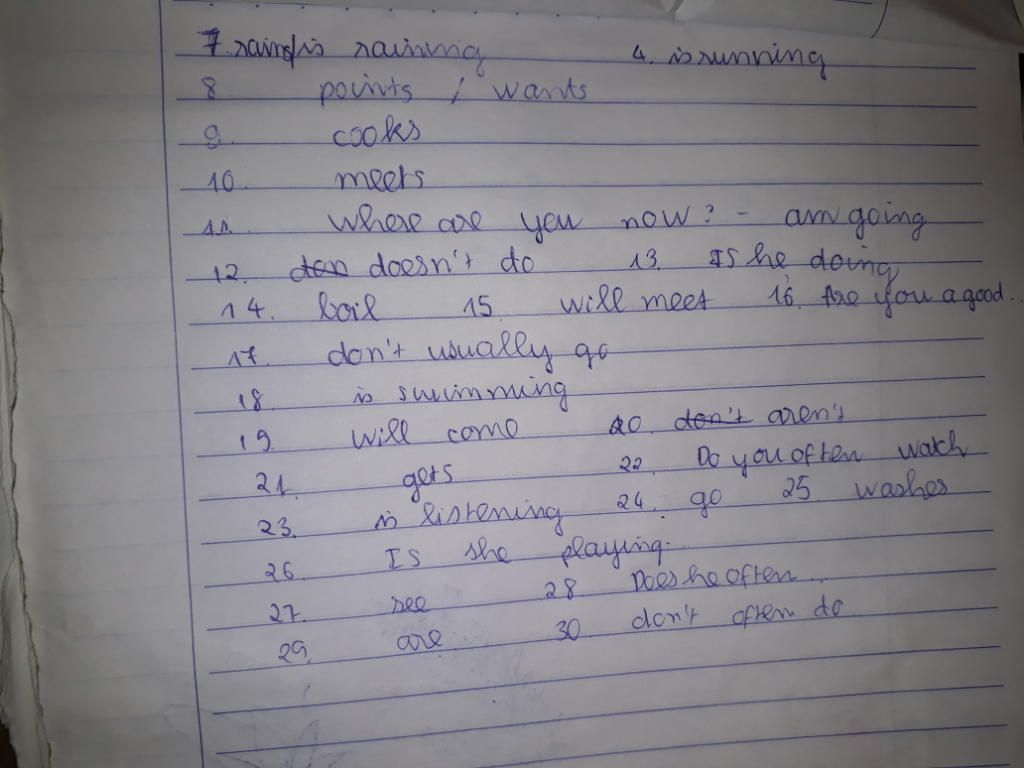 7. rains/is raining 4. is running
8 points / wants
9 cooks
10. meets
11. Where are you now? - am going
12. doesn't do 13. Is he doing
14. boil 15. will meet 16. Are you a good...
17. don't usually go
18. is swimming
19. will come 20. don't aren't
21. gets 22. Do you often watch
23. is listening 24. go 25. washes
26 Is she playing.
27. see 28. Does he often...
29. are 30. don't often do